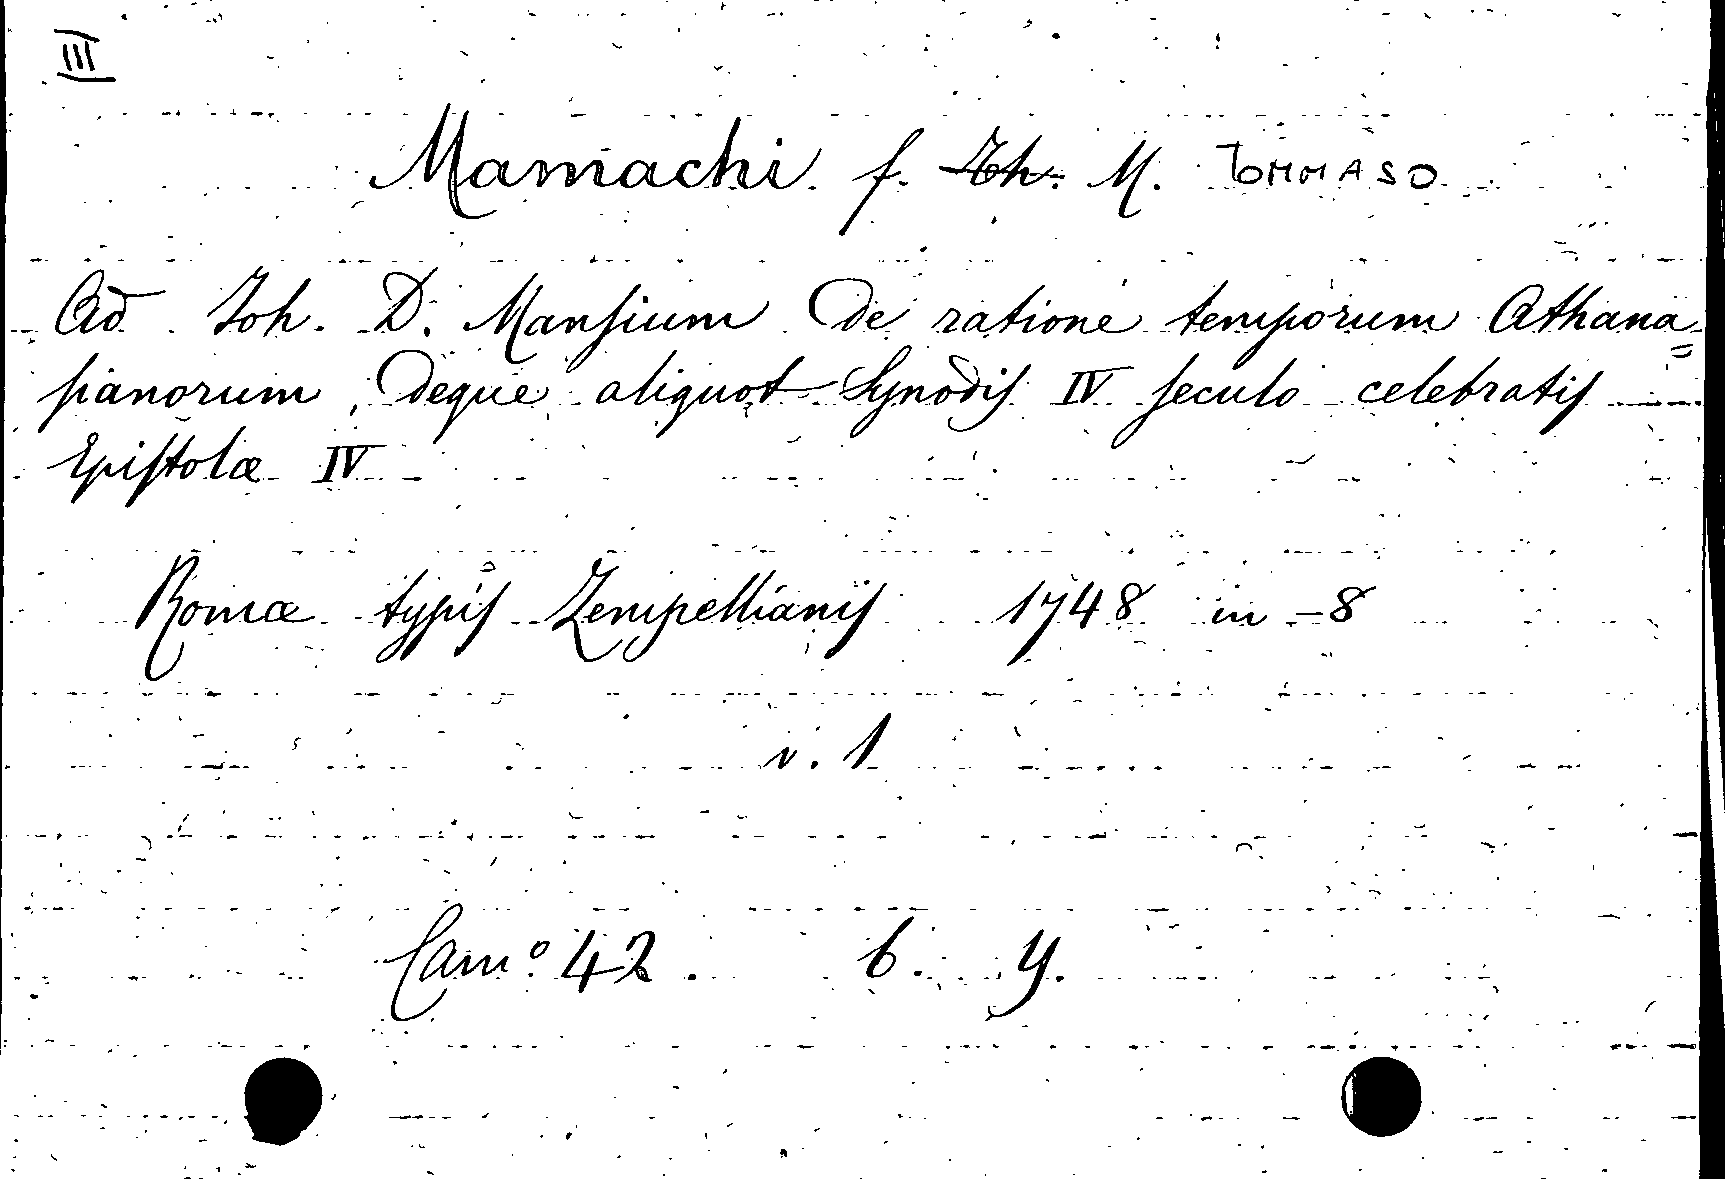 III
Mamachi f. Th. M. TOMMASO
Ad Joh. D. Mansium De ratione temporum Athana=
sianorum, deque aliquot Synodis IV seculo celebratis
Epistolæ IV
Romæ typis Zempellianis 1748 in-8
v. 1
Cam.º 42. 6. y.